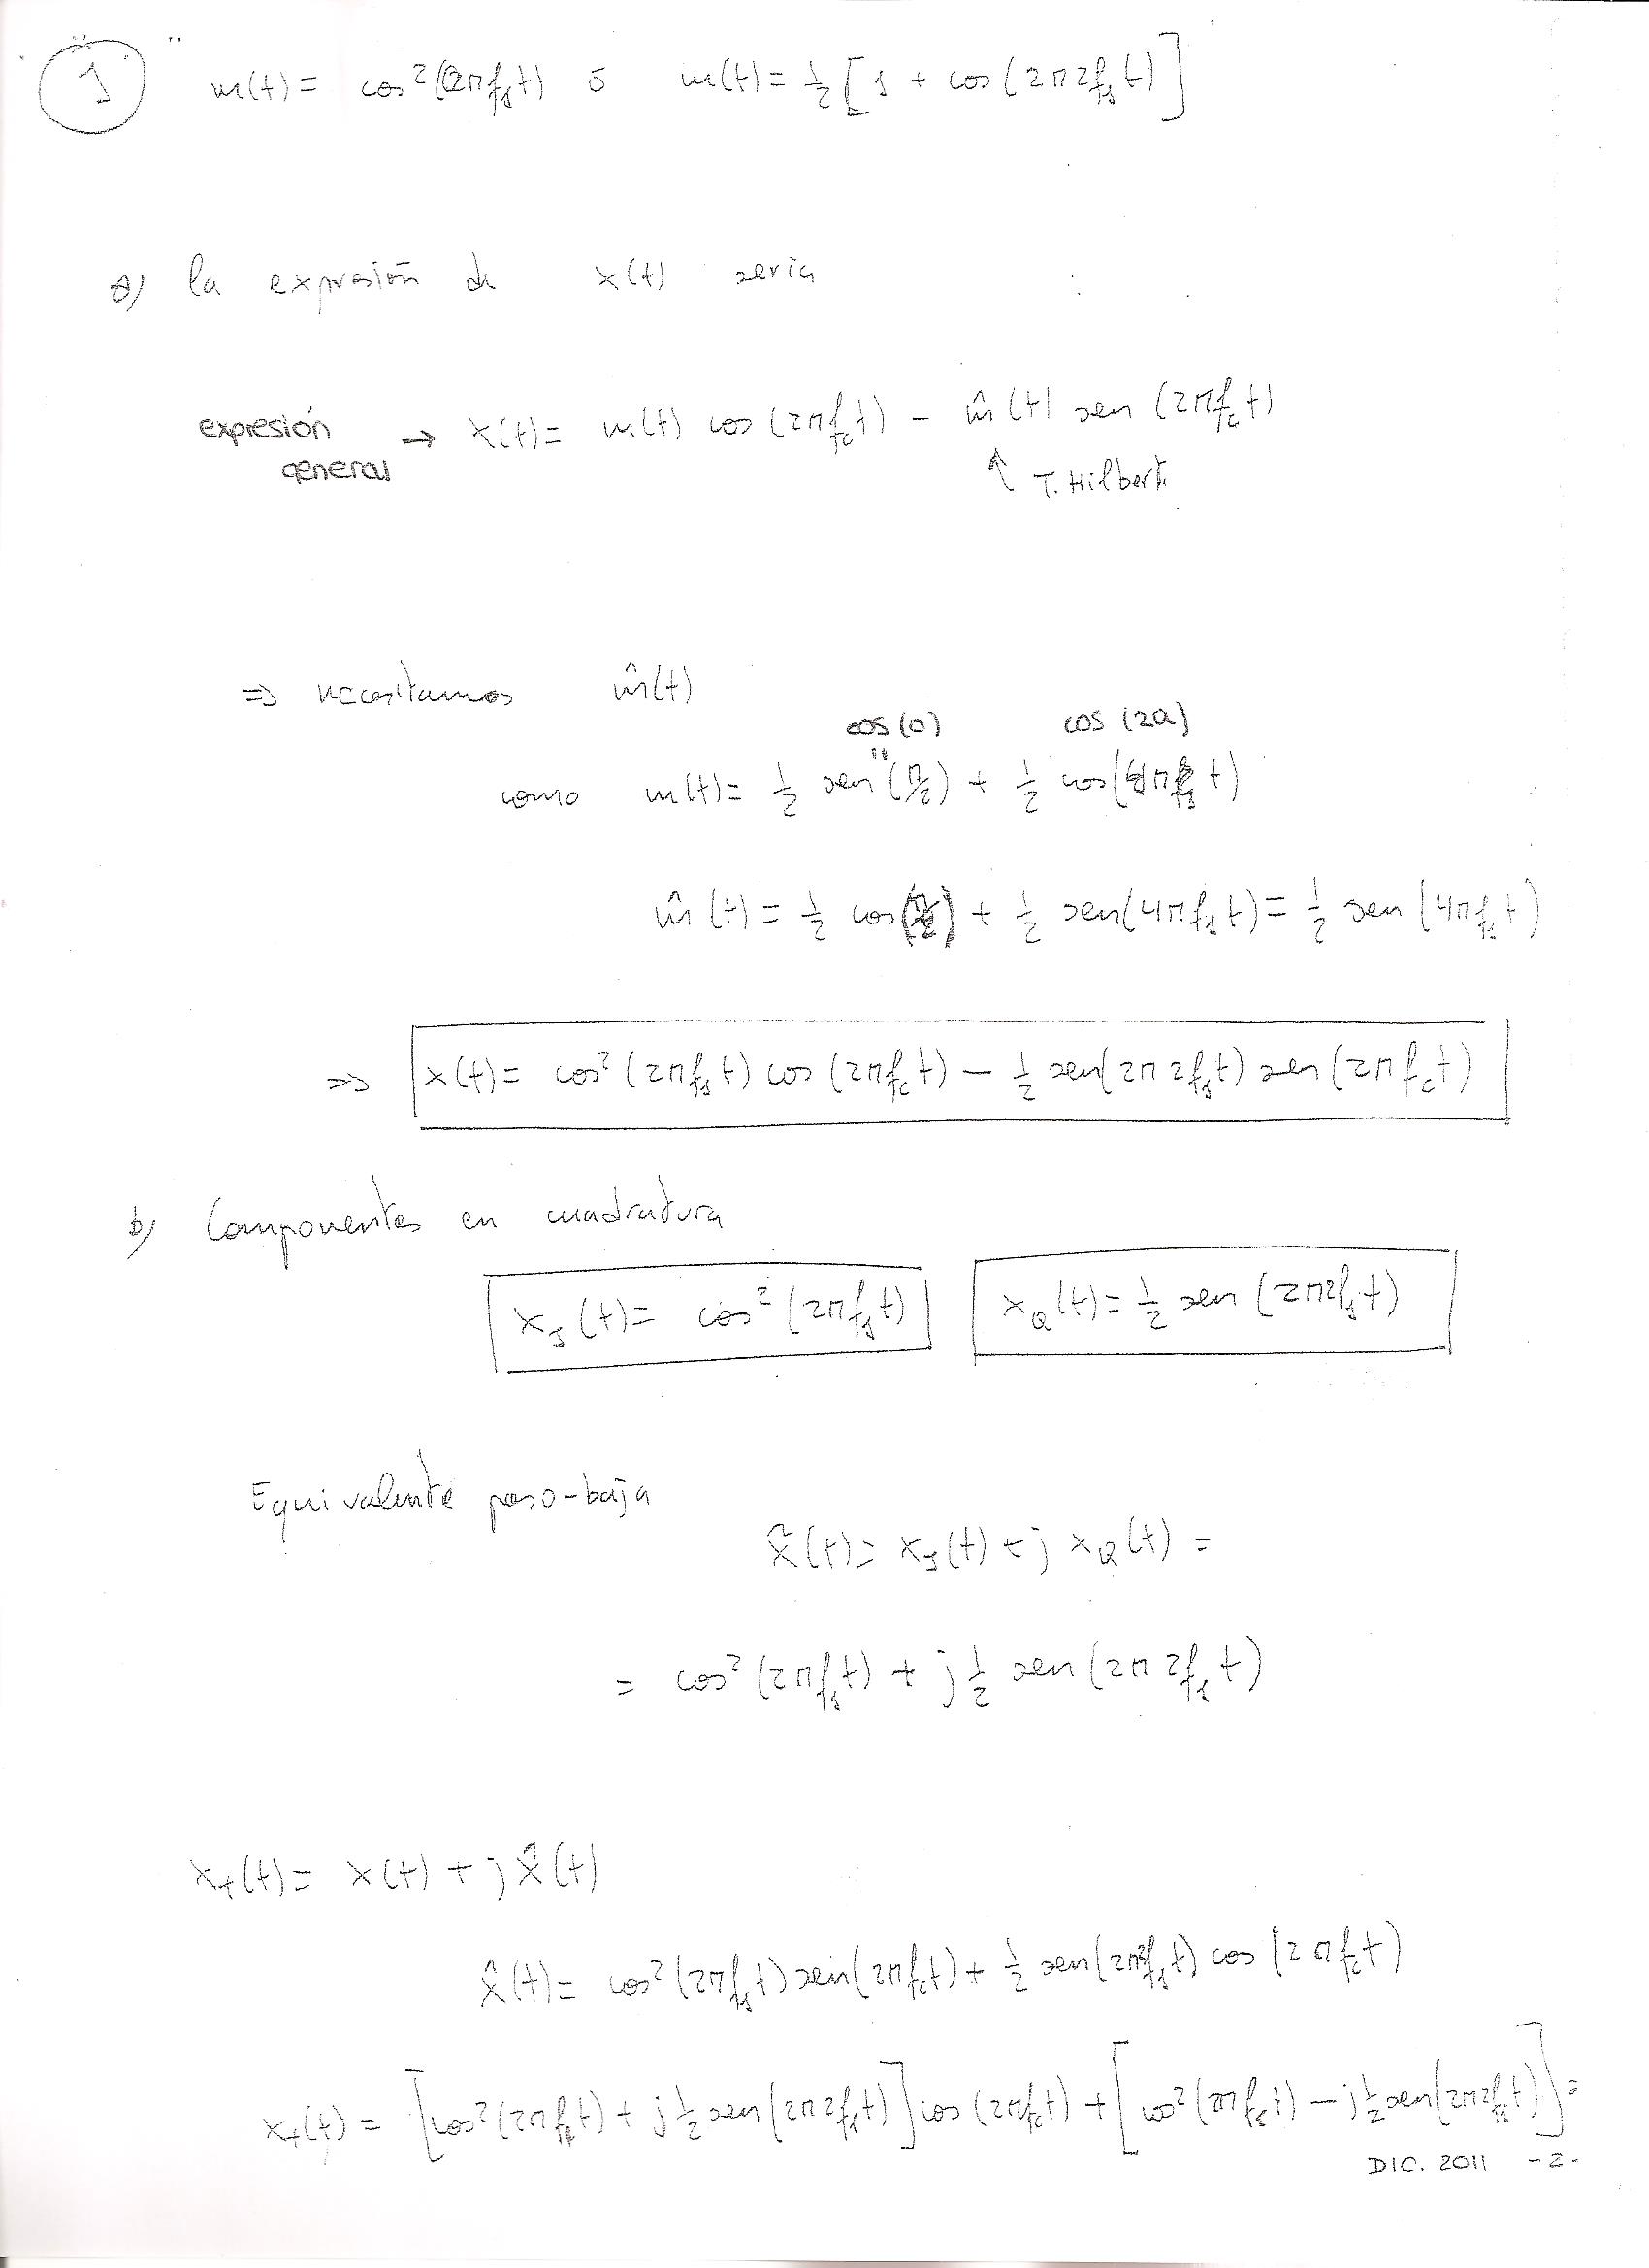 1 m(t) = cos²(2πf₁t) ó m(t) = ½[1 + cos(2π2f₁t)]
a) la expresión de x(t) sería
expresión general → x(t) = m(t) cos(2πf_c t) - m̂(t) sen(2πf_c t)
↑ T. Hilbert.
⇒ necesitamos m̂(t)
cos(0) cos(2a)
"
como m(t) = ½ sen(π/2) + ½ cos(4πf₁t)
m̂(t) = ½ cos(π/2) + ½ sen(4πf₁t) = ½ sen(4πf₁t)
⇒ x(t) = cos²(2πf₁t) cos(2πf_c t) - ½ sen(2π2f₁t) sen(2πf_c t)
b) Componentes en cuadratura
x_I(t) = cos²(2πf₁t) x_Q(t) = ½ sen(2π2f₁t)
Equivalente paso-baja
x̃(t) = x_I(t) + j x_Q(t) =
= cos²(2πf₁t) + j ½ sen(2π2f₁t)
x₊(t) = x(t) + j x̂(t)
x̂(t) = cos²(2πf₁t) sen(2πf_c t) + ½ sen(2π2f₁t) cos(2πf_c t)
x₊(t) = [cos²(2πf₁t) + j ½ sen(2π2f₁t)] cos(2πf_c t) + [cos²(2πf₁t) - j ½ sen(2π2f₁t)] =
DIC. 2011 -2-